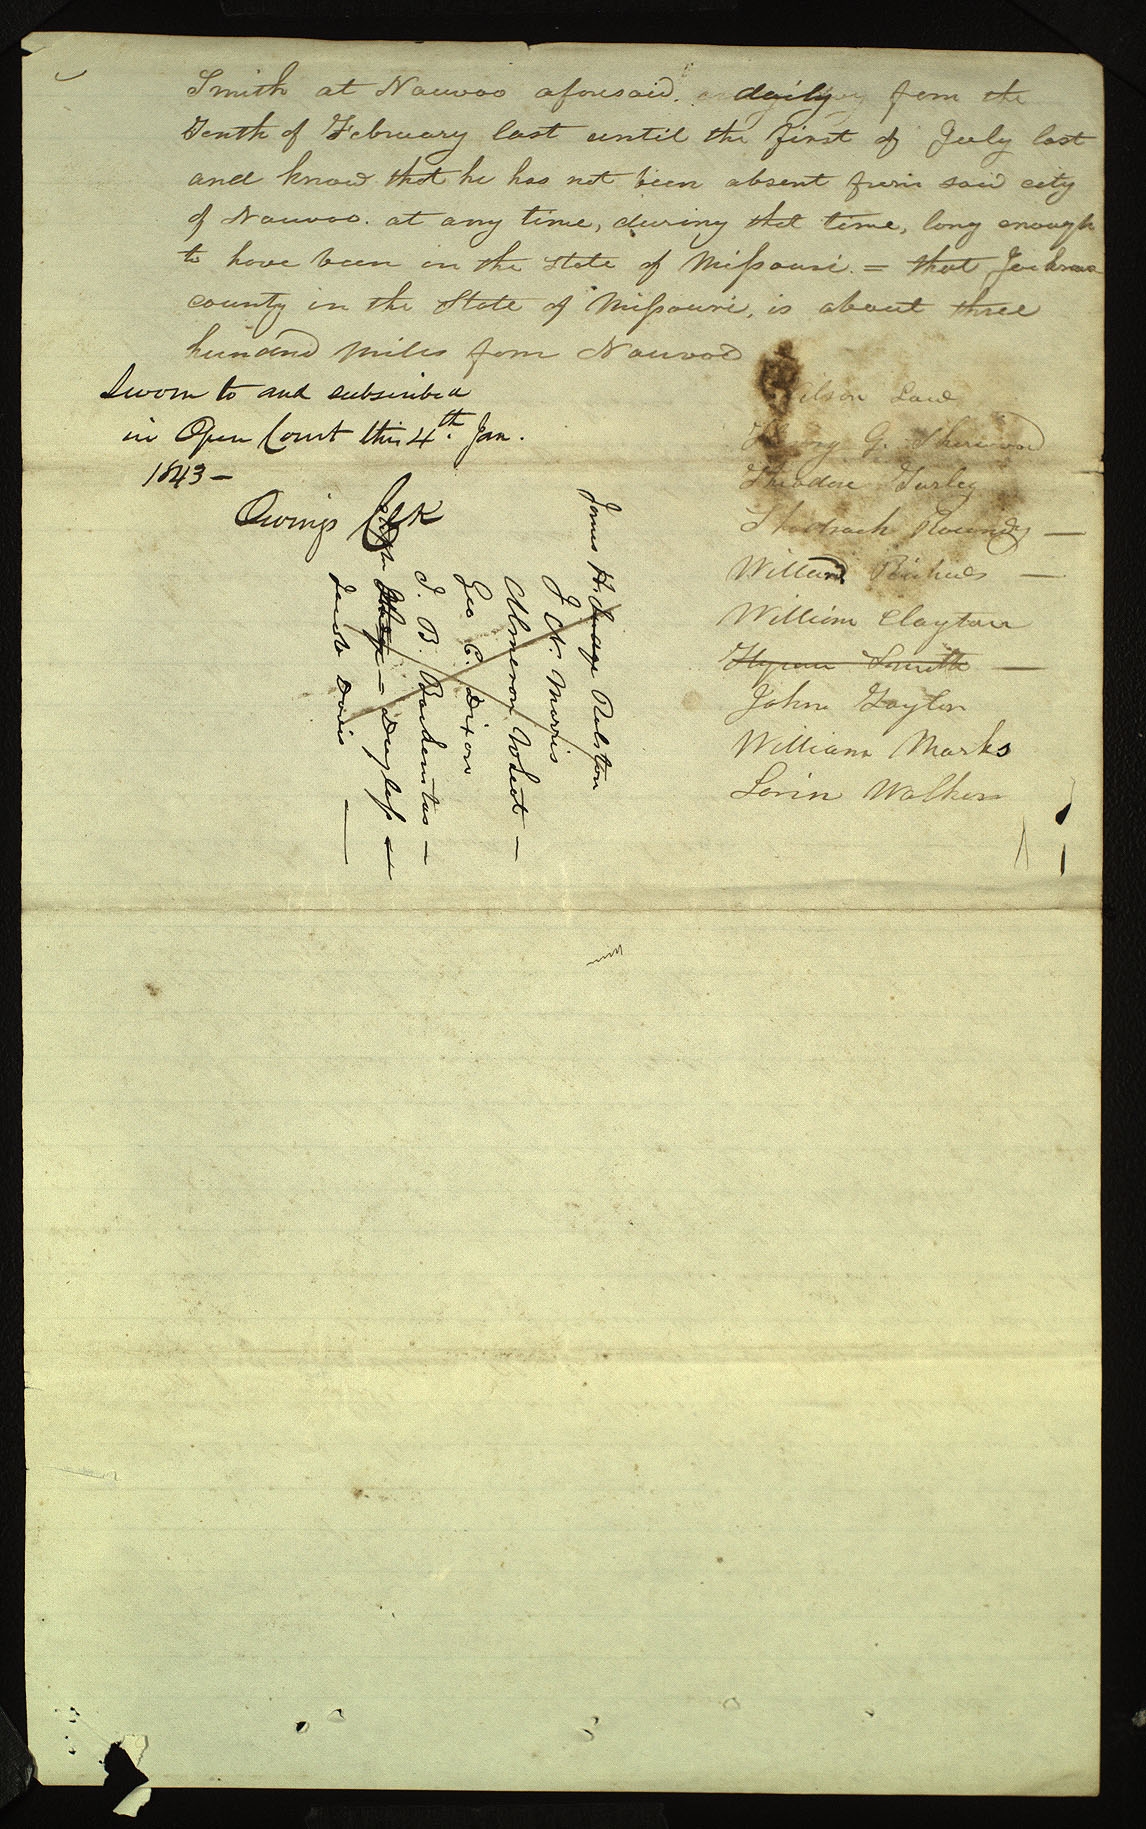 Smith at Nauvoo aforesaid. daily from the
Tenth of February last until the first of July last
and know that he has not been absent from said city
of Nauvoo. at any time, during that time, long enough
to have been in the State of Missouri. = that Jackson
county in the State of Missouri, is about three
hundred miles from Nauvoo
Sworn to and subscribed
in Open Court this 4th. Jan.
1843 —
Owings Clk
Wilson Law
Henry G. Sherwood
Theodore Turley
Shadrach Roundy —
Willard Richards —
William Clayton
Hyrum Smith —
John Taylor
William Marks
Lorin Walker
James H. Ralston
J N. Morris
Almeron Wheat —
Geo C. Dixon
I. B. Backenstos —
Douglass
Jacob Davis —